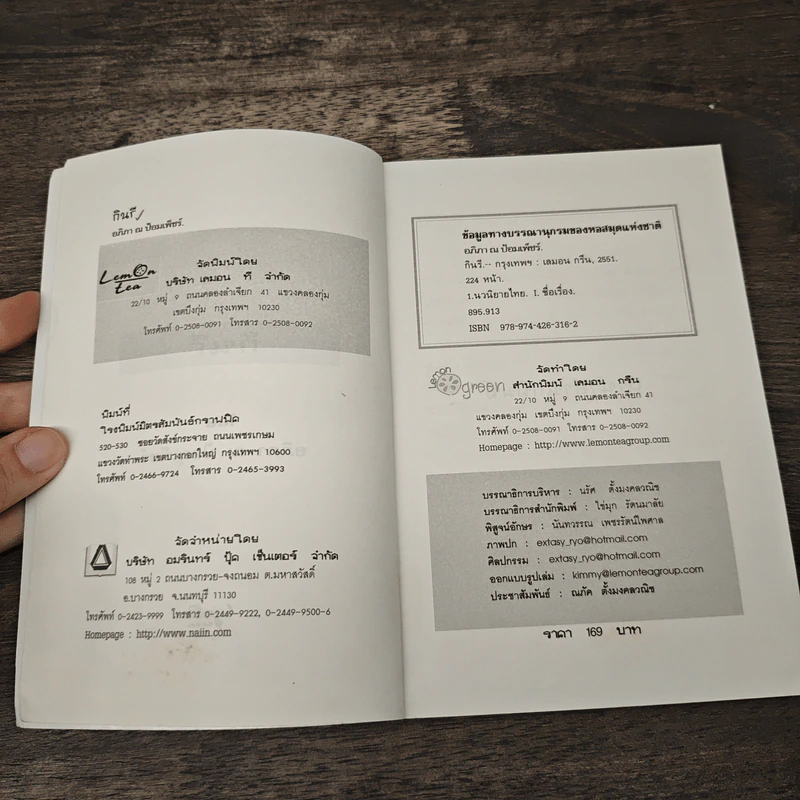 กินรี
อภิภา ณ ป้อมเพ็ชร์.
Lemon tea
จัดพิมพ์โดย
บริษัท เลมอน ที จำกัด
22/10 หมู่ 9 ถนนคลองลำเจียก 41 แขวงคลองกุ่ม
เขตบึงกุ่ม กรุงเทพฯ 10230
โทรศัพท์ 0-2508-0091 โทรสาร 0-2508-0092
พิมพ์ที่
โรงพิมพ์มิตรสัมพันธ์กราฟฟิค
520-530 ซอยวัดสังข์กระจาย ถนนเพชรเกษม
แขวงวัดท่าพระ เขตบางกอกใหญ่ กรุงเทพฯ 10600
โทรศัพท์ 0-2466-9724 โทรสาร 0-2465-3993
จัดจำหน่ายโดย
บริษัท อมรินทร์ บุ๊ค เซ็นเตอร์ จำกัด
108 หมู่ 2 ถนนบางกรวย-จงถนอม ต.มหาสวัสดิ์
อ.บางกรวย จ.นนทบุรี 11130
โทรศัพท์ 0-2423-9999 โทรสาร 0-2449-9222, 0-2449-9500-6
Homepage : http://www.naiin.com
ข้อมูลทางบรรณานุกรมของหอสมุดแห่งชาติ
อภิภา ณ ป้อมเพ็ชร์.
กินรี.-- กรุงเทพฯ : เลมอน กรีน, 2551.
224 หน้า.
1.นวนิยายไทย. I. ชื่อเรื่อง.
895.913
ISBN 978-974-426-316-2
lemon green
จัดทำโดย
สำนักพิมพ์ เลมอน กรีน
22/10 หมู่ 9 ถนนคลองลำเจียก 41
แขวงคลองกุ่ม เขตบึงกุ่ม กรุงเทพฯ 10230
โทรศัพท์ 0-2508-0091 โทรสาร 0-2508-0092
Homepage : http://www.lemonteagroup.com
บรรณาธิการบริหาร : นรัศ ตั้งมงคลวณิช
บรรณาธิการสำนักพิมพ์ : ไข่มุก รัตนมาลัย
พิสูจน์อักษร : นันทวรรณ เพชรรัตน์ไพศาล
ภาพปก : extasy_ryo@hotmail.com
ศิลปกรรม : extasy_ryo@hotmail.com
ออกแบบรูปเล่ม : kimmy@lemonteagroup.com
ประชาสัมพันธ์ : ณภัค ตั้งมงคลวณิช
ราคา 169 บาท